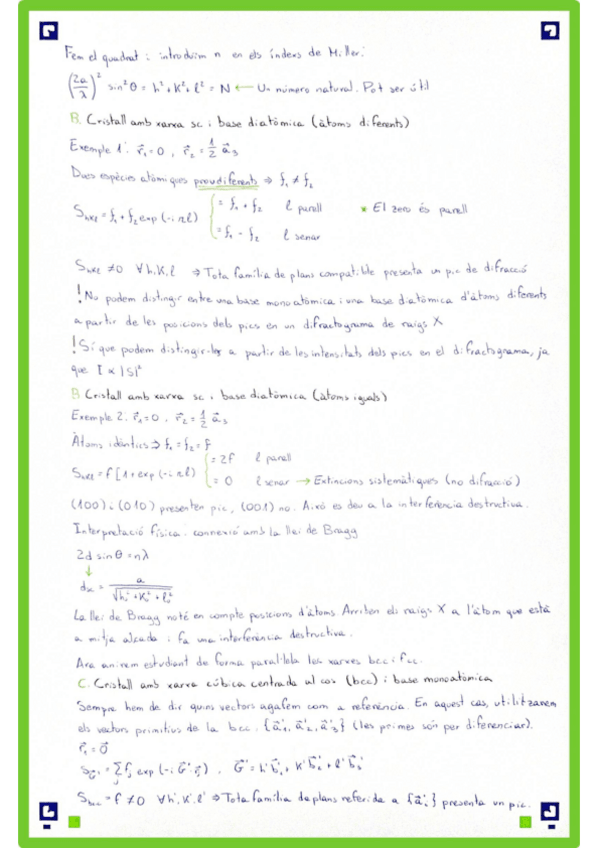 Fem el quadrat i introduïm n en els índexs de Miller:
(2a/λ)² sin²θ = h² + K² + l² = N ← Un número natural. Pot ser útil
B. Cristall amb xarxa sc i base diatòmica (àtoms diferents)
Exemple 1: r⃗₁ = 0 , r⃗₂ = 1/2 a⃗₃
Dues espècies atòmiques prou diferents ⇒ f₁ ≠ f₂
S_hkl = f₁ + f₂ exp(-iπl) { = f₁ + f₂ l parell * El zero és parell
= f₁ - f₂ l senar
S_hkl ≠ 0 ∀h,K,l ⇒ Tota família de plans compatible presenta un pic de difracció
! No podem distingir entre una base monoatòmica i una base diatòmica d'àtoms diferents
a partir de les posicions dels pics en un difractograma de raigs X
! Sí que podem distingir-les a partir de les intensitats dels pics en el difractograma, ja
que I ∝ |S|²
B Cristall amb xarxa sc i base diatòmica (àtoms iguals)
Exemple 2. r⃗₁ = 0 , r⃗₂ = 1/2 a⃗₃
Àtoms idèntics ⇒ f₁ = f₂ = f
S_hkl = f [1 + exp(-iπl) { = 2f l parell
= 0 l senar → Extincions sistemàtiques (no difracció)
(100) i (010) presenten pic, (001) no. Això es deu a la interferència destructiva.
Interpretació física: connexió amb la llei de Bragg
2d sinθ = nλ
↓
= a / √(h₀² + K₀² + l₀²)
La llei de Bragg no té en compte posicions d'àtoms. Arriben els raigs X a l'àtom que està
a mitja alçada i fa una interferència destructiva.
Ara anirem estudiant de forma paral·lela les xarxes bcc i fcc.
C. Cristall amb xarxa cúbica centrada al cos (bcc) i base monoatòmica
Sempre hem de dir quins vectors agafem com a referència. En aquest cas, utilitzarem
els vectors primitius de la bcc. {a⃗'₁, a⃗'₂, a⃗'₃} (les primes són per diferenciar).
r⃗₁ = 0⃗
S_G⃗' = Σ_j f_j exp(-i G⃗'·r⃗_j) , G⃗' = h' b⃗'₁ + K' b⃗'₂ + l' b⃗'₃
S_bcc = f ≠ 0 ∀h',K',l' ⇒ Tota família de plans referida a {a⃗'ᵢ} presenta un pic.